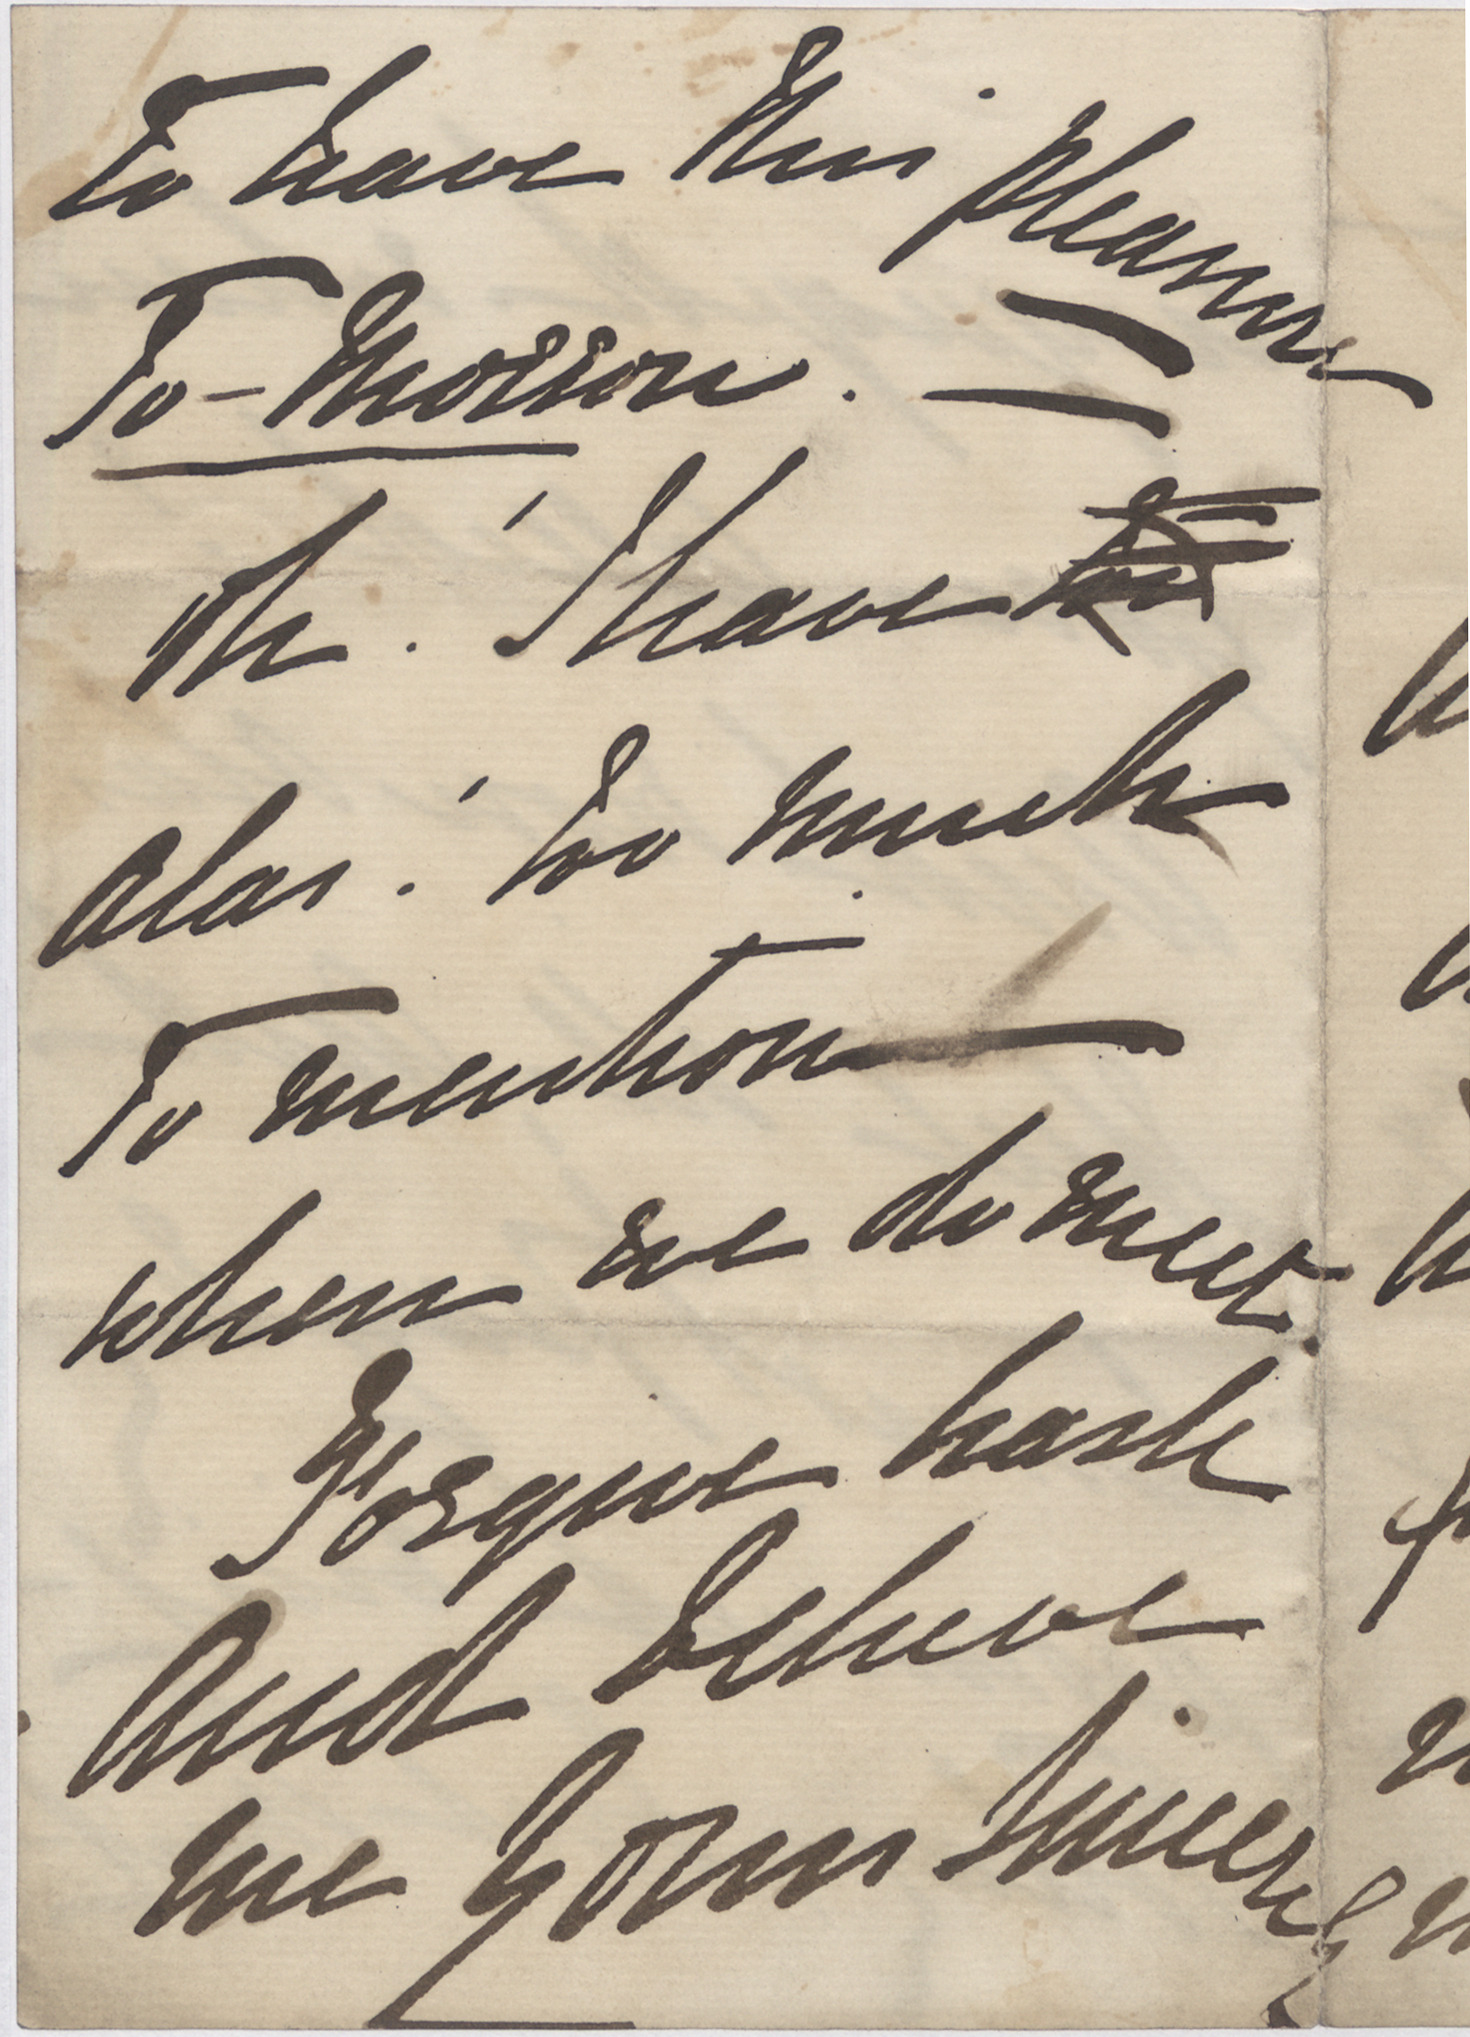 To have this pleasure
To-Morrow. —
Oh! I have
alas! too much
To mention —
when we do meet.
Forgive haste
And believe
me Yours Sincerely